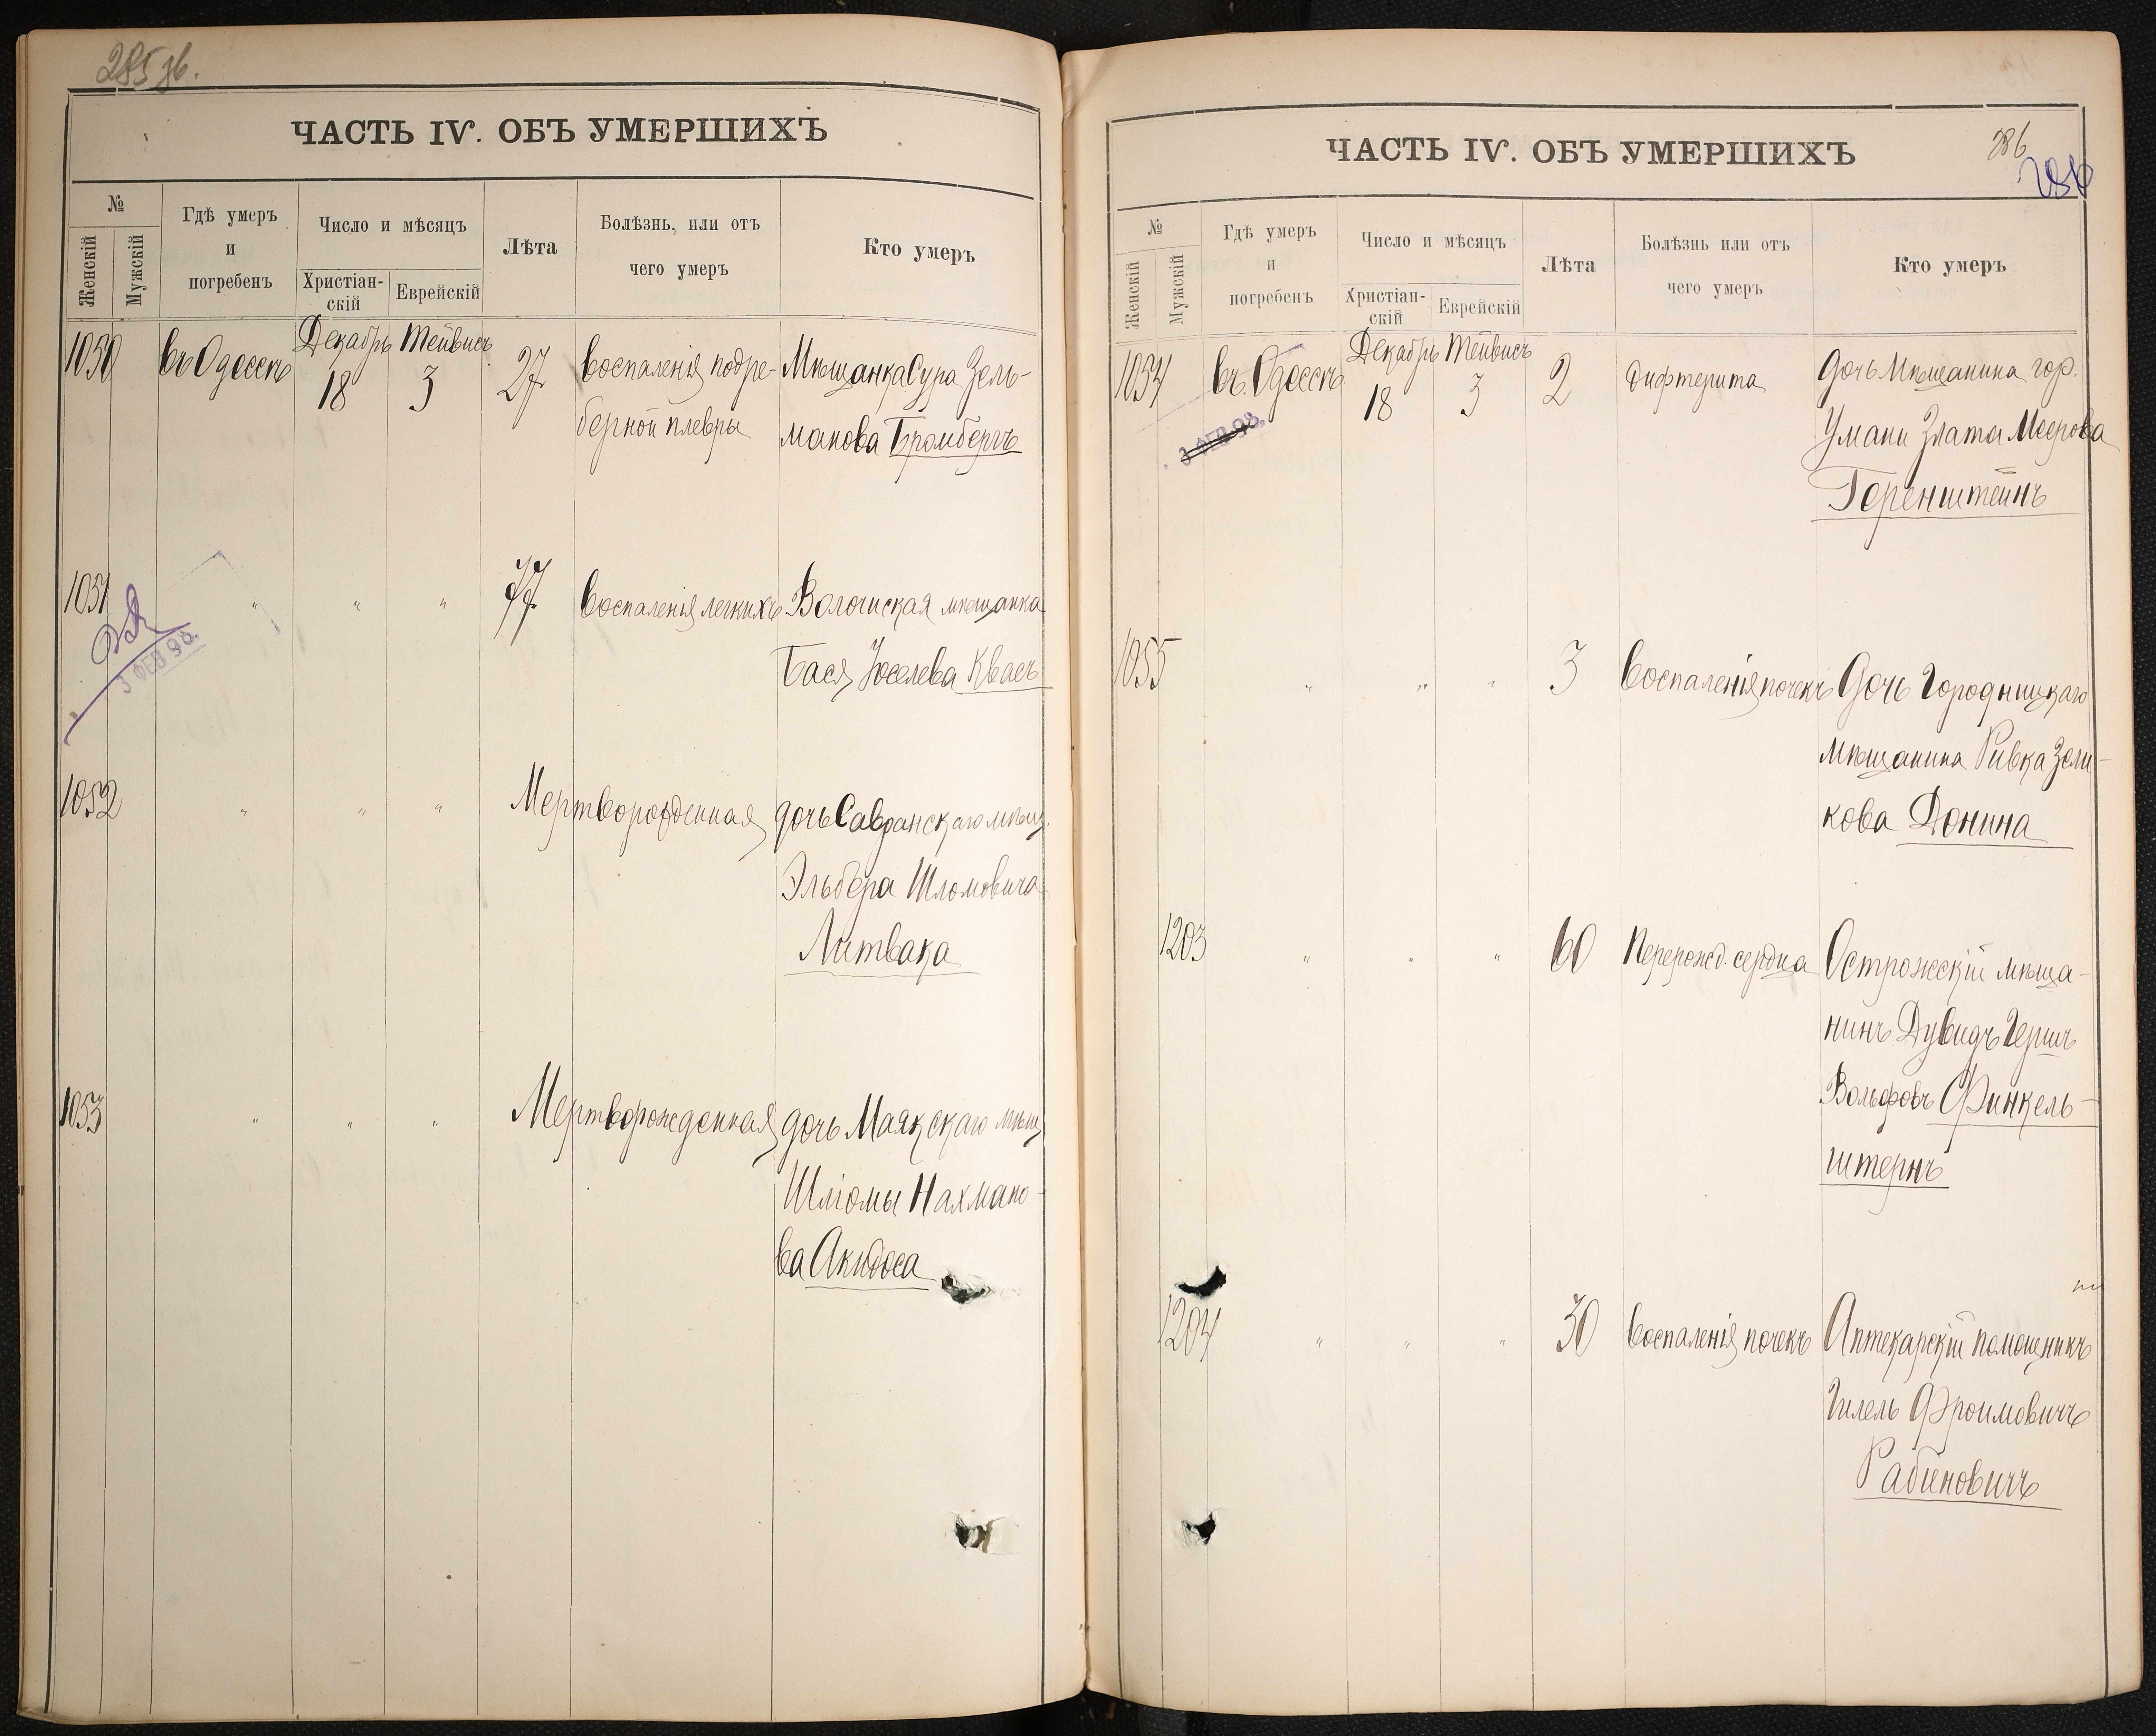 285 об.
ЧАСТЬ IV. ОБЪ УМЕРШИХЪ
№
Женскій
Мужскій
Гдѣ умеръ
и
погребенъ
Число и мѣсяцъ
Христіан-
скій
Еврейскій
Лѣта
Болѣзнь, или отъ
чего умеръ
Кто умеръ
1050 въ Одессѣ Декабрь Тейвисъ 27 Воспаленія подре- Мѣщанка Сура Зель-
18 3 берной плевры манова Бромбергъ
1051 " " " 77 Воспаленія легкихъ Волочиская мѣщанка
Бася Іоселева Квасъ
3 ФЕВ 98.
1052 " " " Мертворожденная дочь Савранскаго мѣщ.
Эльбера Шломовича
Литвака
1053 " " " Мертворожденная дочь Маякскаго мѣщ.
Шліомы Нахмано-
ва Акибоса
ЧАСТЬ IV. ОБЪ УМЕРШИХЪ
286
286
№
Женскій
Мужскій
Гдѣ умеръ
и
погребенъ
Число и мѣсяцъ
Христіан-
скій
Еврейскій
Лѣта
Болѣзнь или отъ
чего умеръ
Кто умеръ
1054 въ Одессѣ Декабрь Тейвисъ 2 Дифтерита Дочь мѣщанина гор.
18 3 Умани Злата Меерова
3 ФЕВ 98.
Геренштейнъ
1055 " " " 3 Воспаленія почекъ Дочь Городницкаго
мѣщанина Ривка Зели-
кова Донина
1203 " " " 60 Перерожд. сердца Острожскій мѣща-
нинъ Дувидъ Гершъ
Вольфовъ Финкель-
штернъ
1204 " " " 30 Воспаленія почекъ Аптекарскій помощникъ
Гилель Фроимовичъ
Рабиновичъ